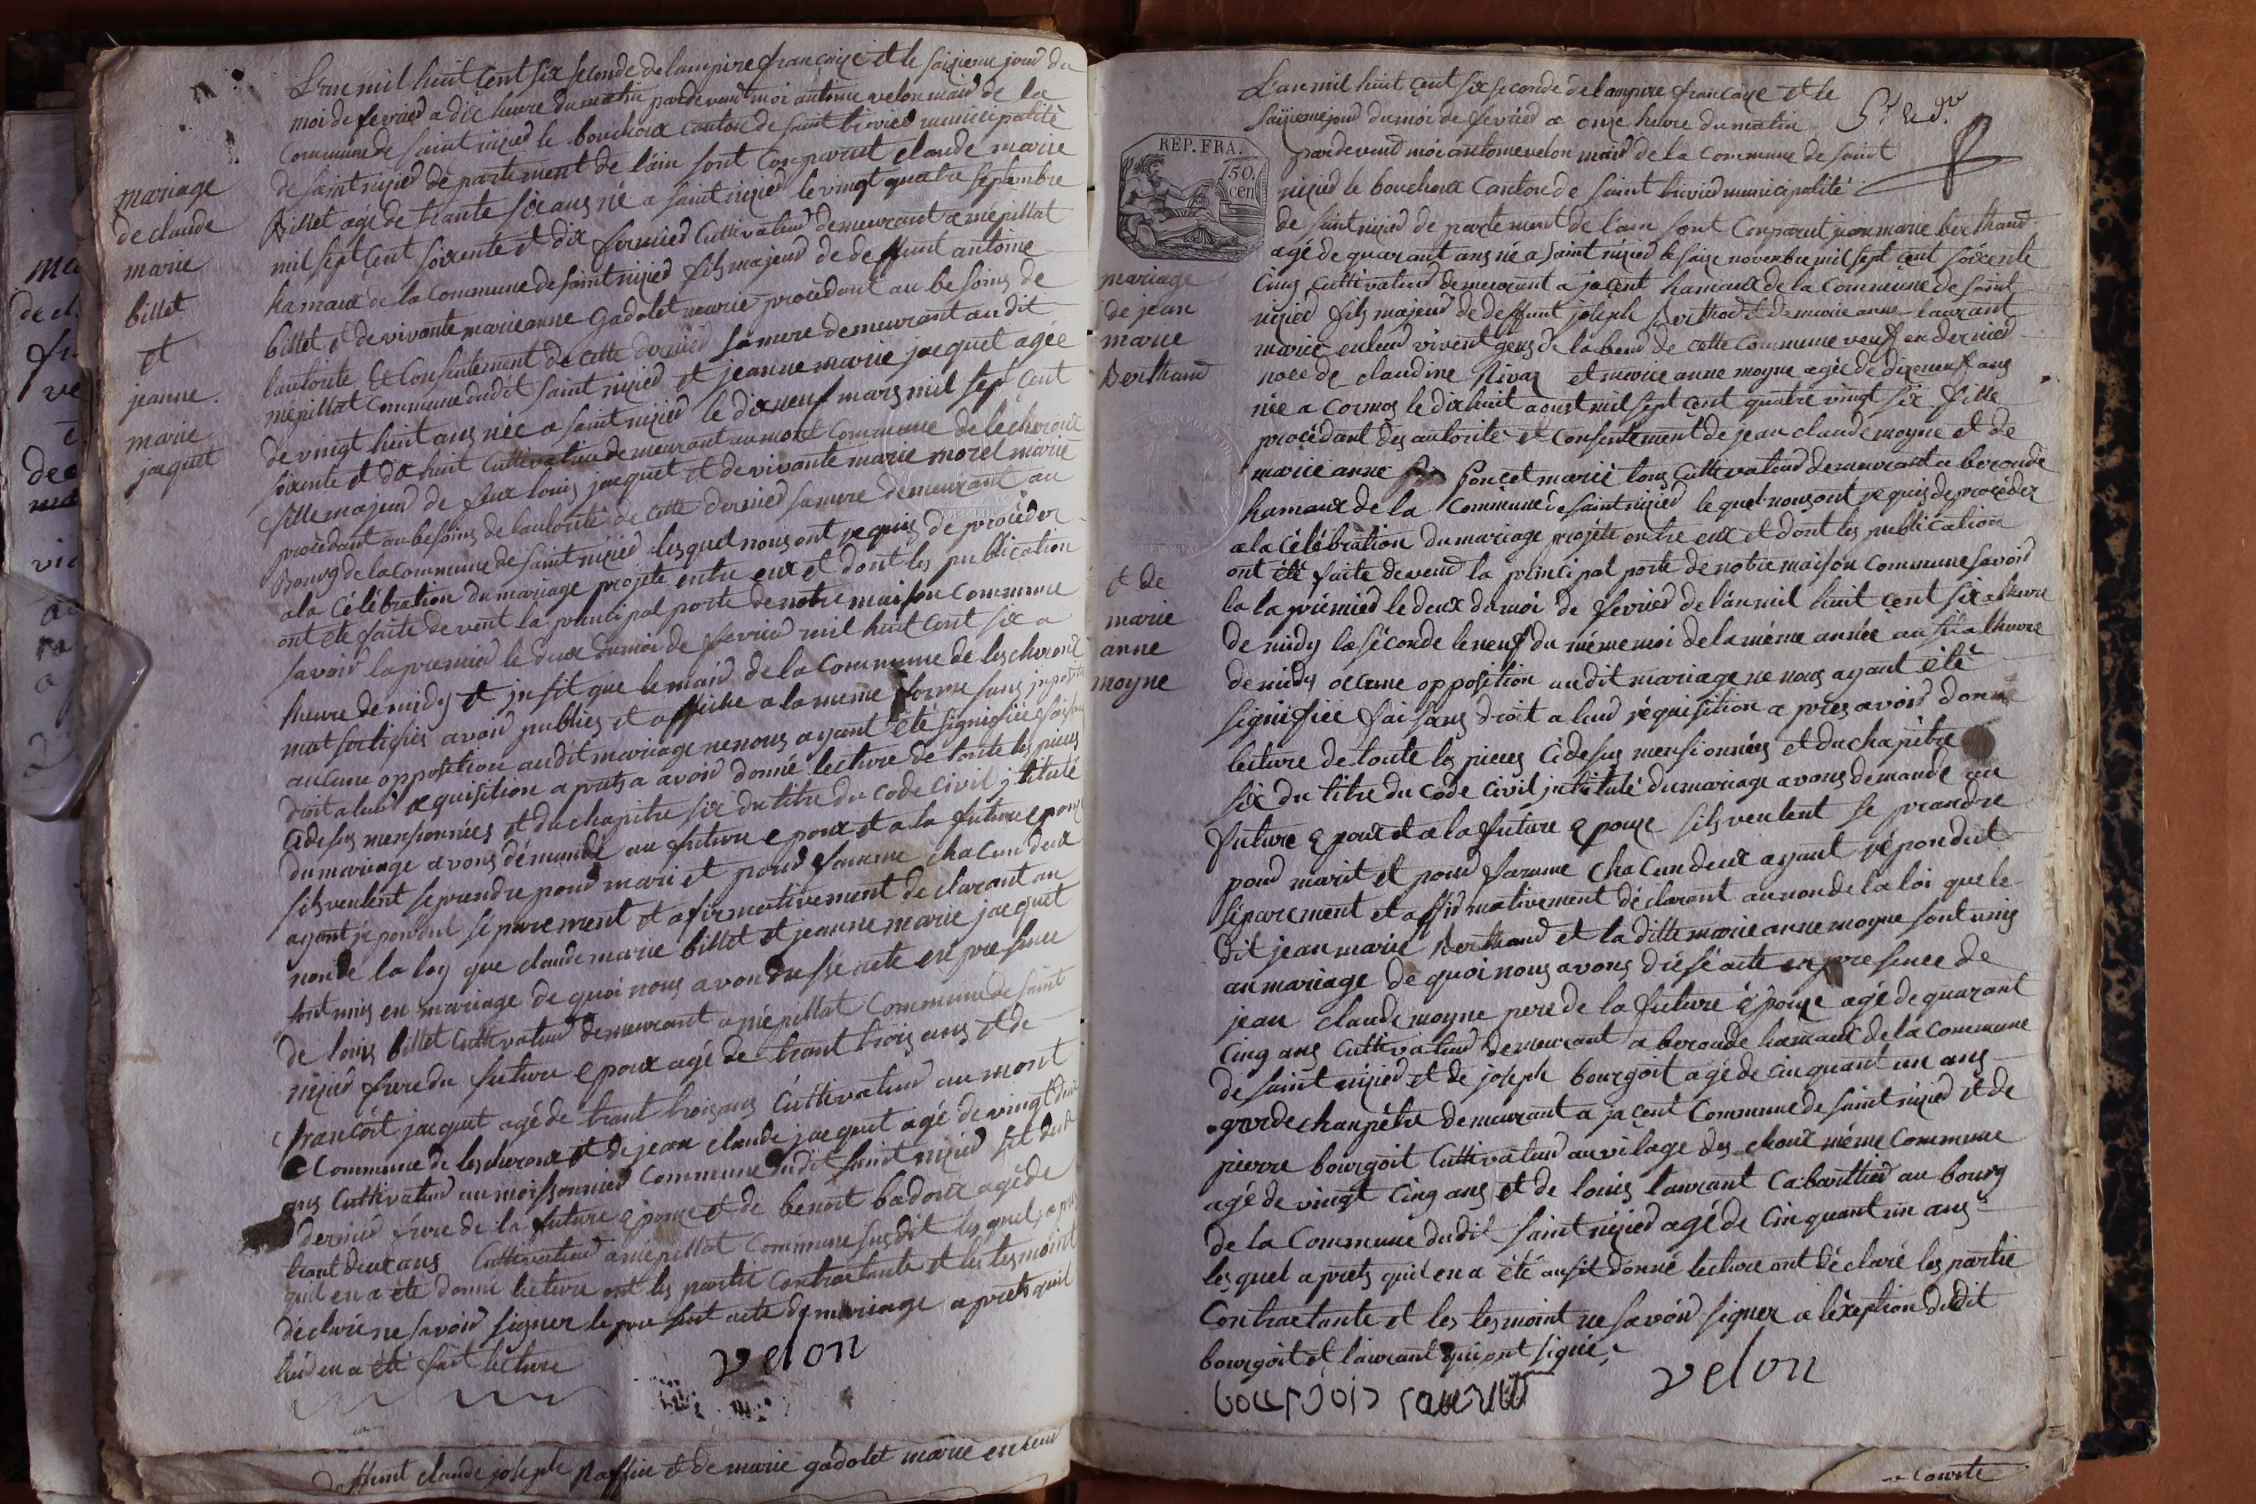 L'an mil huit cent six seconde de l'ampire françoise et le saizieme jour du
moi de fevrier a dix heure du matin pardevant moi antoine velon maire de la
commune de saint nizied le bouchoux canton de saint trivied municipalité
de saint nizied département de l'ain sont comparut claude marie
Billet agé de trante six ans né a saint nizied le vingt quatre septembre
mil sept cent soixente et dix fermied cultivateur demeurant a mépillat
hamaux de la commune de saint nizied fils majeur de deffunt antoine
billet et de vivante marie anne gadolet procédant au besoins de
l'autorité et consentement de cette dernied sa mere demeurant audit
mépillat commune dudit saint nizied et jeanne marie jacquet agée
de vingt huit ans née a saint nizied le dixneuf mars mil sept cent
soixente et dix huit demeurant au mont commune de lescheroux
fille majeur de feux louis jacquet et de vivante marie morel marié
procédant au besoins de l'autorité de cette dernied sa mere demeurant au
Bourg de la commune de saint nizied lesquel nous ont requis de procéder
a la célébration du mariage projeté entre eux et dont les publication
ont été faite devent la principal porte de notre maison commune
savoir la premied le deux du moi de fevried mil huit cent six a
lheure de midy et que le maire de la commune de lescheroux
avoir publies et affiche a la meme forme sans
aucune opposition audit mariage ne nous ayant été signifiée
droit a leur requisition aprets avoir donné lecture de toute les pieces
cidesus mensionnées et du chapitre six du titre du code civil jntitulé
du mariage avons démandé au future epoux et a la future epouze
sils veulent se prendre pour mari et pour famme chacun deux
ayant répondut séparement et afirmativement declarant au
nom de la loy que claude marie billet et jeanne marie jacquet
sont unis en mariage de quoi nous avon dressé acte en presence
de louis billet cultivateur demeurant a mépillat commune de saint
nizied frere du future epoux agé de trant trois ans et de
françoit jacquet agé de trant trois ans cultivateur au mont
commune de lescheroux et de jean claude jacquet agé de vingt
ans cultivateur au moissonnied commune dudit saint nizied
dernied frere de la future epouze et de benoit badoux agé de
trant deux ans cultivateur a mépillat commune susdit lesquel
quil en a été donné lecture ont les partie contractante et les tesmoint
déclaré ne savoir signer le present acte de mariage aprets quil
leur en a été fait lecture
velon
mariage
de claude
marie
billet
et
jeanne
marie
jacquet
deffunt claude joseph et de marie gadolet marié en leur
L'an mil huit cent six seconde de l'ampire françoise et le
saizieme jour du moi de fevried a onze heure du matin
pardevant moi antoine velon maire de la commune de saint
nizied le bouchoux canton de saint trivied municipalité
de saint nizied département de l'ain sont comparut jean marie berthaud
agé de quarant ans né a saint nizied le saize novembre mil sept cent soixente
cinq cultivateur demeurant a jacent hamaux de la commune de saint
nizied fils majeur de deffunt joseph et de marie anne laurant
marié en leur vivent gens de labeur de cette commune veuf en dernied
noce de claudine et marie anne moyne agée de dixneuf ans
née a cormoz le dixhuit aoust mil sept cent quatre vingt six fille
procédant des autorité et consentement de jean claude moyne et de
marie anne poncet marié tous cultivateur demeurant a beroude
hamaux de la commune de saint nizied lequel nous ont requis de procéder
a la célébration du mariage projeté entre eux et dont les publication
ont été faite devend la principal porte de notre maison commune savoir
la la prémied le deux du moi de fevried de l'an mil huit cent six a lheure
de midy la séconde le neuf du méme moi de la méme année a lheure
de midy aucune opposition audit mariage ne nous ayant été
signifiée faisans droit a leur réquisition aprés avoir donné
lecture de toute les pieces cidesus mensionnées et du chapitre
six du titre du code civil jntitulé du mariage avons demandé au
future epoux et a la future epouze sils veulent se prandre
pour marit et pour famme chacun deux ayant répondut
séparement et affirmativement déclarant au non de la loi que le
dit jean marie Berthaud et la ditte marie anne moyne sont unis
au mariage de quoi nous avons dréssé acte en presence de
jean claude moyne pere de la future épouze agé de quarant
cinq ans cultivateur demeurant a beroude hamaux de la commune
de saint nizied et de joseph bourgoit agé de cinquant un ans
garde chanpétre demeurant a jacent commune de saint nizied et de
pierre bourgoit cultivateur au vilage des choux méme commune
agé de vingt cinq ans et de louis laurant cabarttied au bourg
de la commune dudit saint nizied agé de cinquant un ans
lesquel aprets quil en a été donné lecture ont déclaré les partie
contractante et les tesmoint ne savoir signer a léxeption dudit
bourgoit et laurant qui ont signé
bourjois laurant velon
REP. FRA.
50.
cen
mariage
de jean
marie
Berthaud
et de
marie
anne
moyne